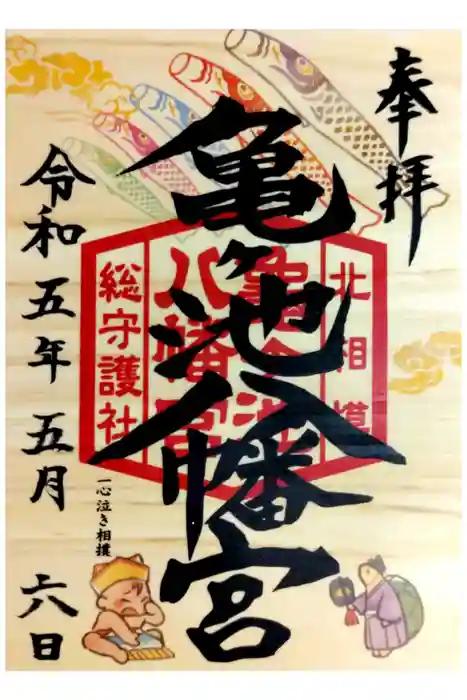 奉拝
北相模
亀ヶ池
八幡宮
総守護社
亀ヶ池八幡宮
一心泣き相撲
令和五年五月六日